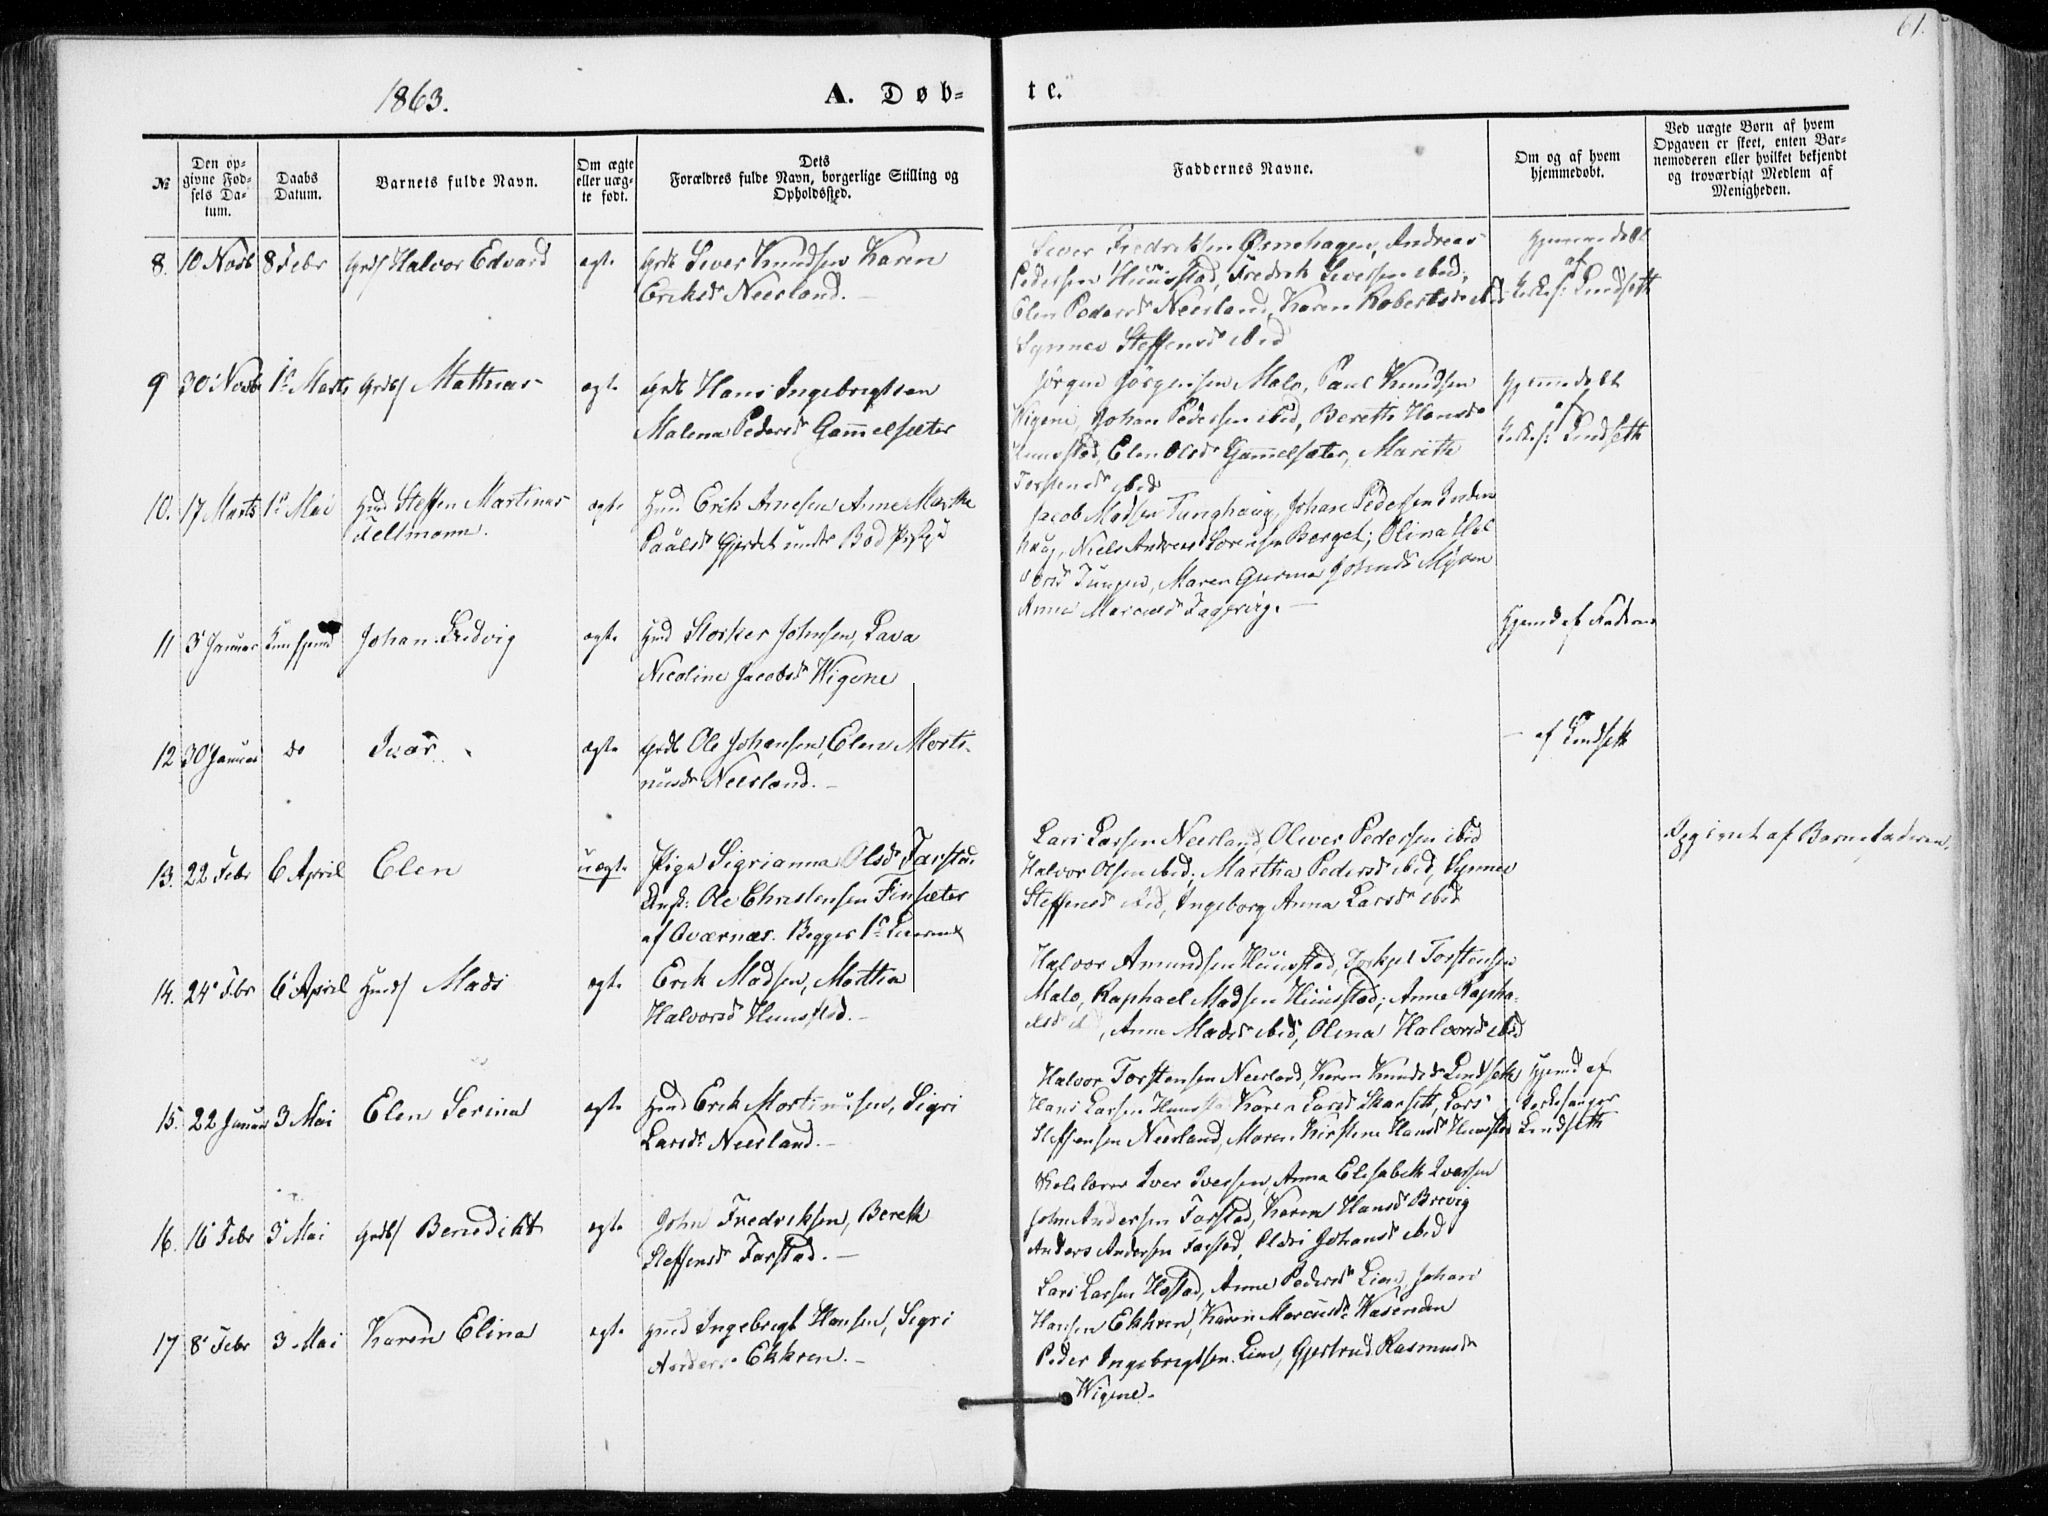 61.
1863.
A. Døb-
te.
№
Den op-
givne Fød-
sels Da-
tum.
Daabs
Datum.
Barnets fulde Navn.
Om ægte
eller uæg-
te født.
Dets
Forældres fulde Navn, borgerlige Stilling og
Opholdssted.
Faddernes Navne.
Om og af hvem
hjemmedøbt.
Ved uægte Børn af hvem
Opgaven er skeet, enten Bar-
nemoderen eller hvilket bekjendt
og troværdigt Medlem af
Menigheden.
8. 10 Novb 8 Febr Halvor Edvard egte Grdb Sever Knudsen Karen
Eriksd Neerland. —
Sever Fredriksen Andreas
Pedersen Huusstad, Fredrik Seversen ibid,
Elen Pedersd Neerland, Karen Robertsd ibid
Synnev Steffensd ibid
af
Lindseth
9 30 Novb 1 Marts Mathias egte Grdb Hans Ingebrigtsen
Malena Pedersd Gammelsæter
Jörgen Jörgensen Malo, Paul Knudsen
Wigene, Johan Pedersen ibid, Bereth Hansd
Huusstad, Elen Olsd Gammelsæter, Marith
Torstensd ibid
af
Lindseth
10. 17 Marts 1 Mai Steffen Martinus
Tellmann.
egte Huusm Erik Arnesen Anne Marthe
Paalsd Gjerdet under Bod
Jacob Madsen Tunghaug, Johan Pedersen
haug, Niels Andreas Sörensen Berget; Olina Hal
vorsd Tungen, Maren Gurina Johnsd Myren
Anne Marcusd Fagervig. —
11 5 Januar Johan Ludvig egte Huusm Storker Johnsen, Lava
Nicoline Jacobsd Wigene
Hjemd af Faderen
12 30 Januar do Ivar egte Grdb Ole Johansen, Elen Morti-
nusd Neerland. —
— af Lindseth
13. 22 Febr 6 April Elen uægte Pige Sigrianna Olsd Farstad
Ungk: Ole Christensen Finsæter
af Avernæs. Begges 1
Lars Larsen Neerland, Oliver Pedersen ibid
Halvor Olsen ibid, Martha Pedersd ibid, Synnev
Steffensd ibid, Ingeborg Anna Larsd ibid
Opgivet af Barnefaderen.
14. 24 Fbr 6 April Mads egte Erik Madsen, Martha
Halvorsd Huusstad. —
Halvor Amundsen Huusstad, Torkjel Torstensen
Malo, Raphael Madsen Huusstad; Anne Rapha-
elsd ibid, Anne Madsd ibid, Olena Halvorsd ibid
15. 22 Januar 3 Mai Elen Serina egte Huusm Erik Mortinusen, Sigri
Larsd Neerland. —
Halvor Torstensen Neerland, Karen Knudsd Lindseth
Hans Larsen Huusstad Karen Larsd Skarseth, Lars
Steffensen Neerland, Maren Kirstine Hansd Huusstad
Hjemd af
Kirkesanger
Lindseth
16. 16 Febr 3 Mai Benedikt egte John Fredriksen, Bereth
Steffensd Farstad. —
Skolelærer Iver Iversen, Anna Elisabeth Ivarsen
John Andersen Farstad, Karen Hansd Brevig
Anders Andersen Farstad, Oldri Johansd ibid
17 8 Febr 3 Mai Karen Elina egte Huusm Ingebrigt Hansen, Sigri
Andersd Ekkren. —
Lars Larsen Hostad, Anne Pedersd Lien, Johan
Hansen Ekkren, Karen Marcusd Wasenden
Peder Ingebrigtsen Lien, Gjertrud Rasmusd
Wigene. —